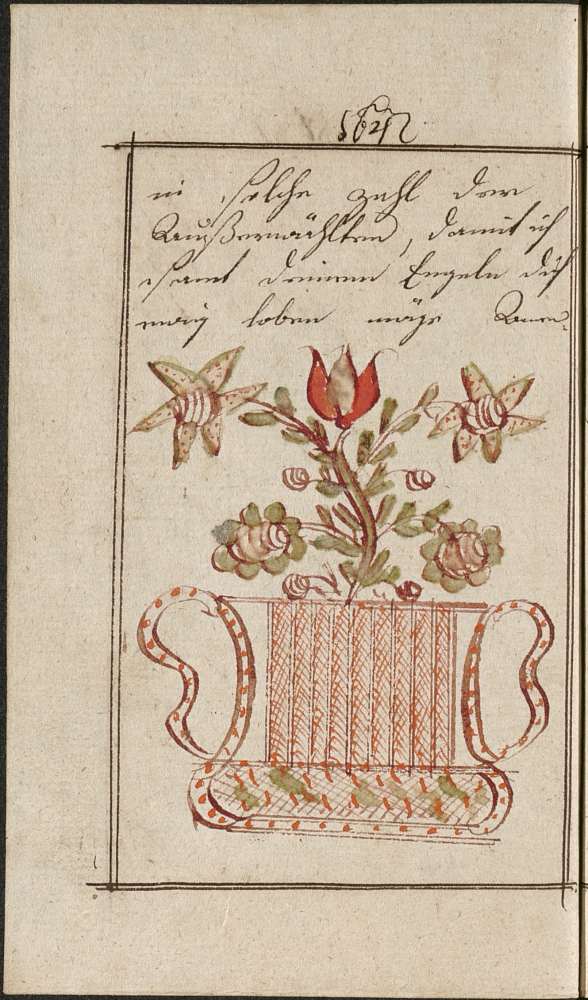 in solche zahl der
Außerwählten, damit ich
samt deinem Engeln dich
loben möge Amen.